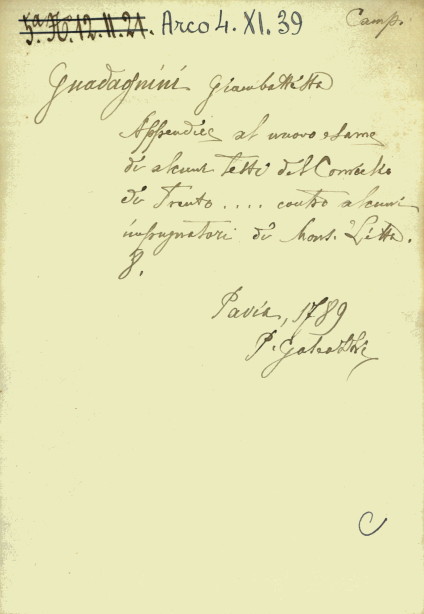 5. H. 12. II. 21. Arco 4. XI. 39
Camp.
Guadagnini Giambattista
Appendice al nuovo esame
di alcuni testi del Concilio
di Trento .... contro alcuni
impugnatori di Mons. Litta.
8.
Pavia, 1789
P. Galeazzi
C